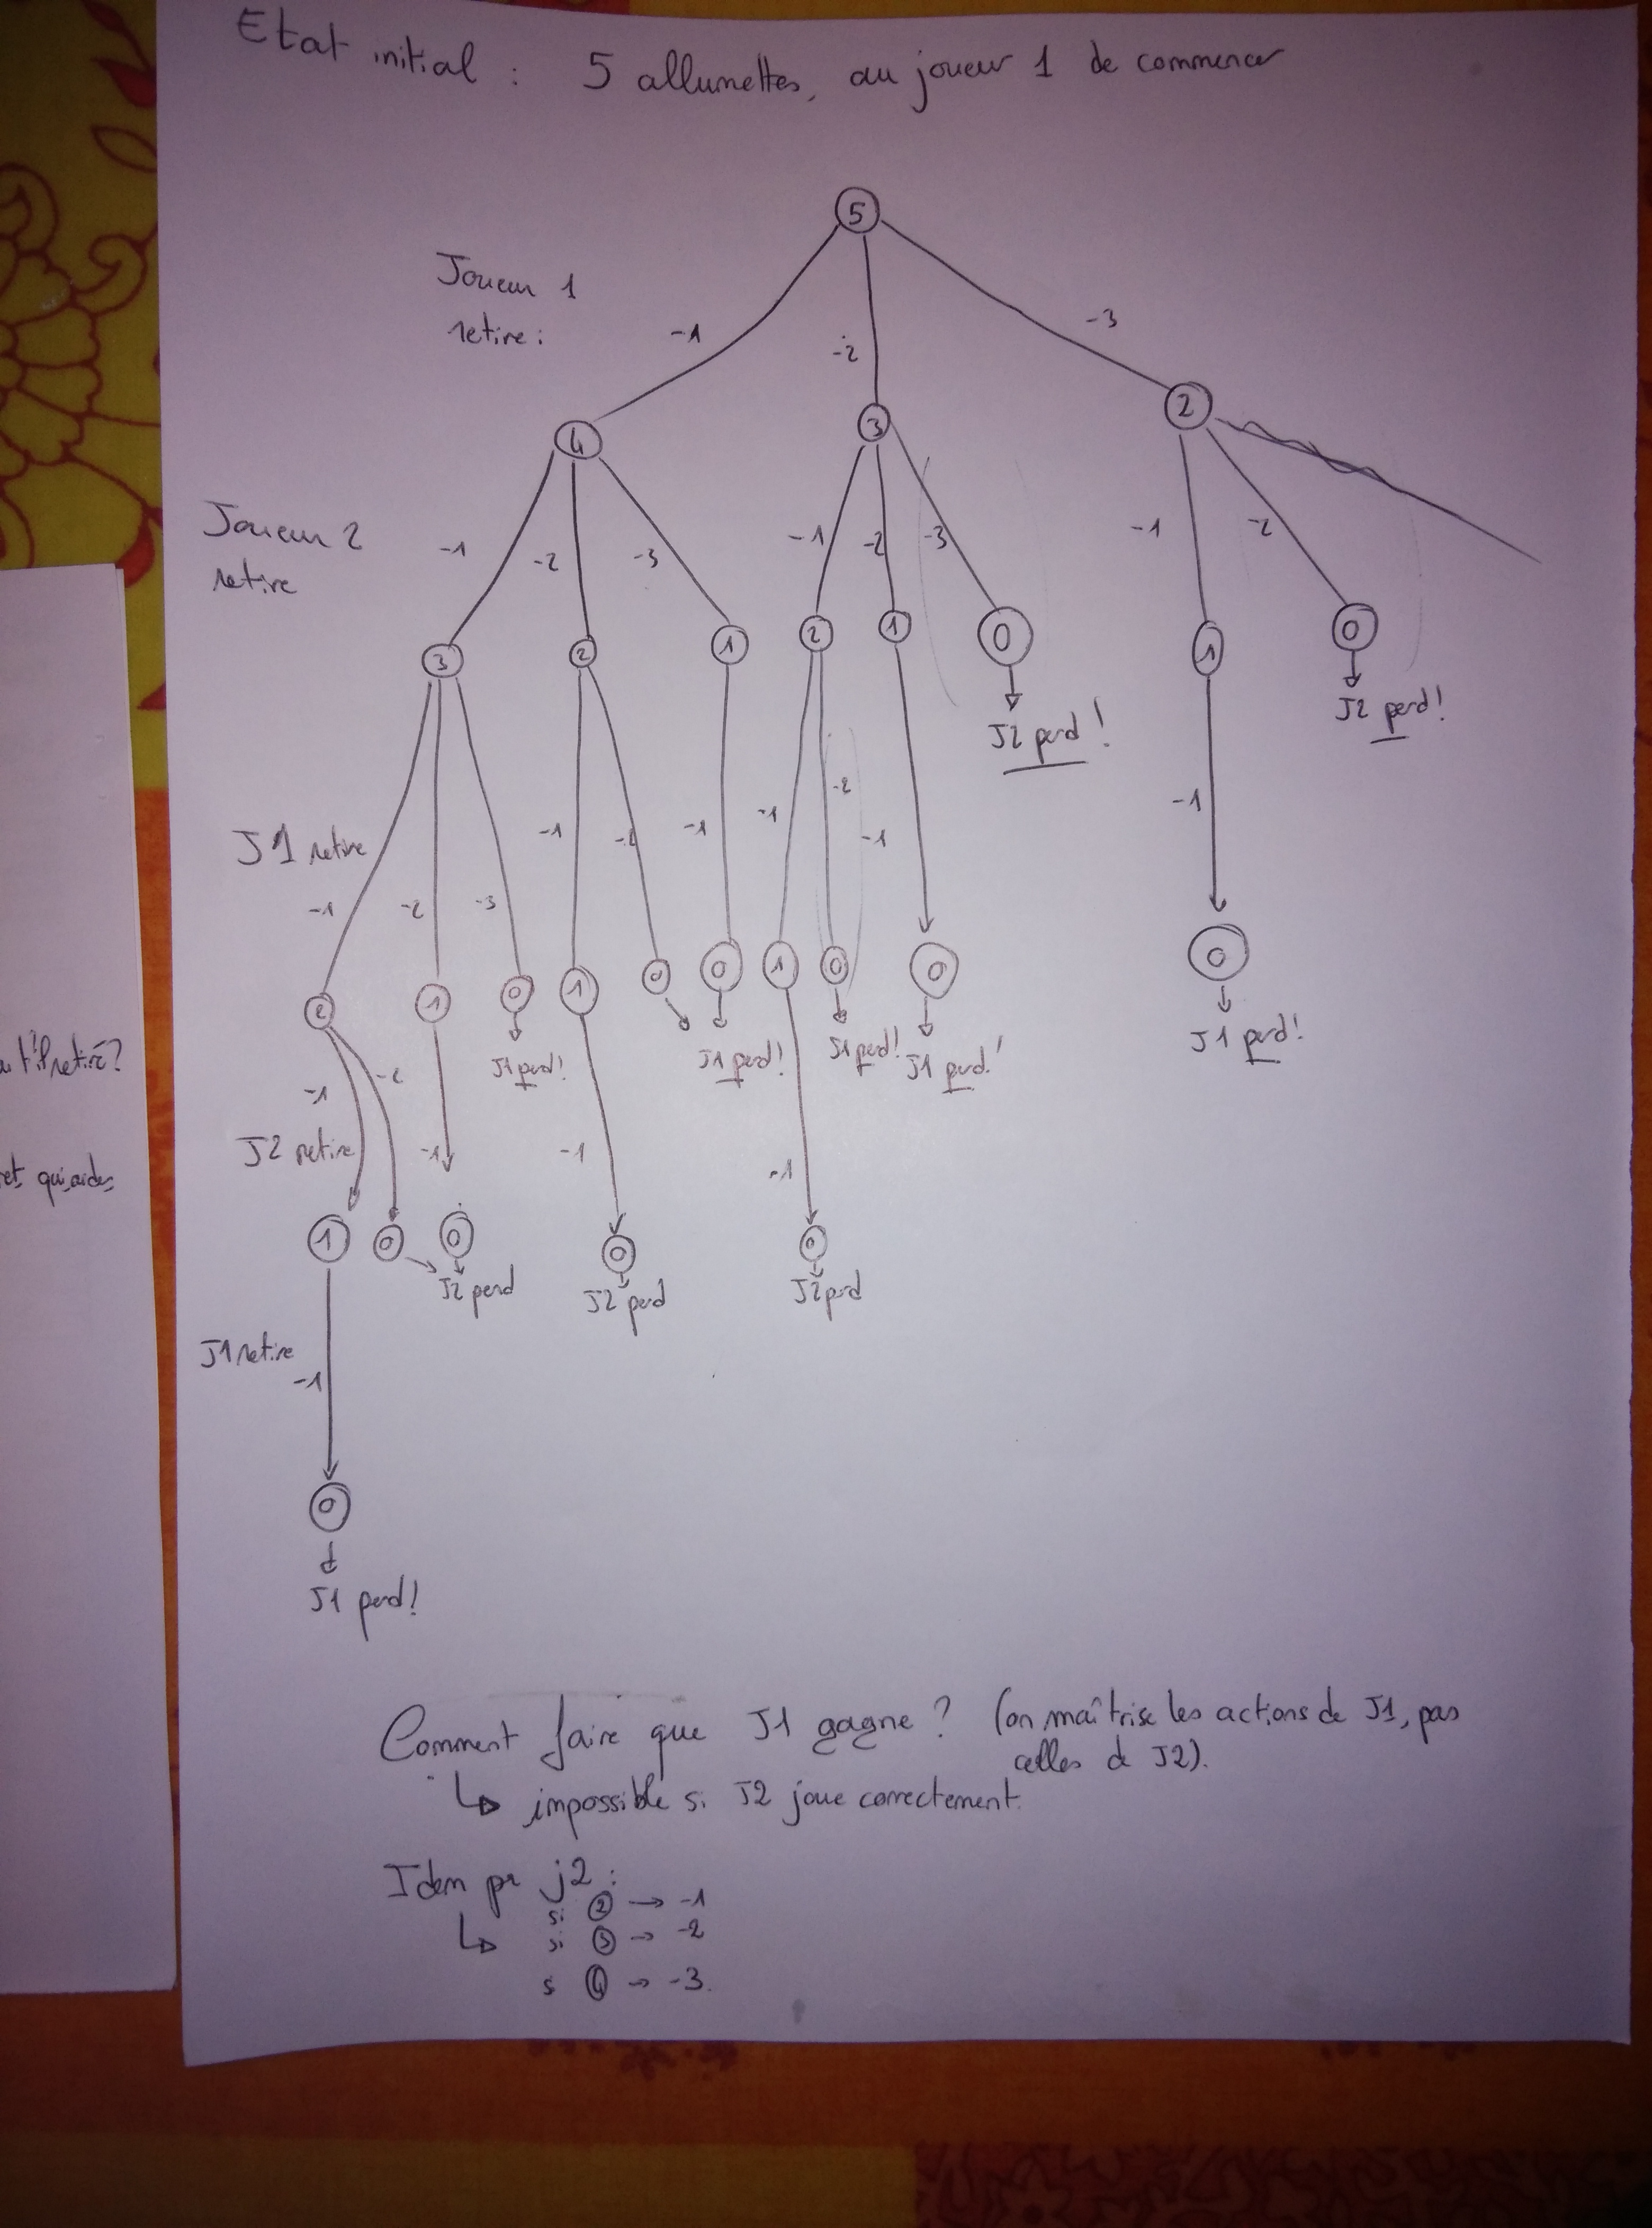 Etat initial : 5 allumettes, au joueur 1 de commencer
5
Joueur 1
retire :
-1 -2 -3
4 3 2
Joueur 2
retire
-1 -2 -3 -1 -2 -3 -1 -2
3 2 1 2 1 0 1 0
J2 perd ! J2 perd !
J1 retire
-1 -2 -3 -1 -2 -1 -1 -2 -1 -1
2 1 0 1 0 0 1 0 0 0
J1 perd! J1 perd! J1 perd! J1 perd! J1 perd!
t'il retiré?
qui aides
J2 retire
-1 -2 -1 -1 -1
1 0 0 0 0
J2 perd J2 perd J2 perd
J1 retire
-1
0
J1 perd!
Comment faire que J1 gagne ? (on maîtrise les actions de J1, pas
celles de J2).
impossible si J2 joue correctement.
Idem pr j2 :
si 2 → -1
si 3 → -2
s 4 → -3.